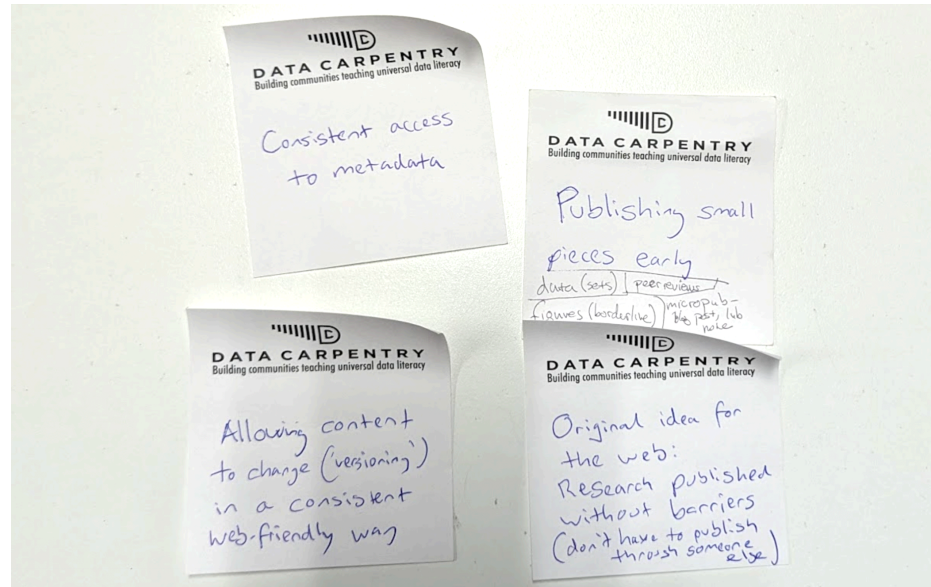 DATA CARPENTRY
Building communities teaching universal data literacy
Consistent access
to metadata
DATA CARPENTRY
Building communities teaching universal data literacy
Publishing small
pieces early
data (sets) peer reviews
figures (borderline) micropub-
blog post, lab
note
DATA CARPENTRY
Building communities teaching universal data literacy
Allowing content
to change ('versioning')
in a consistent
web-friendly way
DATA CARPENTRY
Building communities teaching universal data literacy
Original idea for
the web:
Research published
without barriers
(don't have to publish
through someone
else)